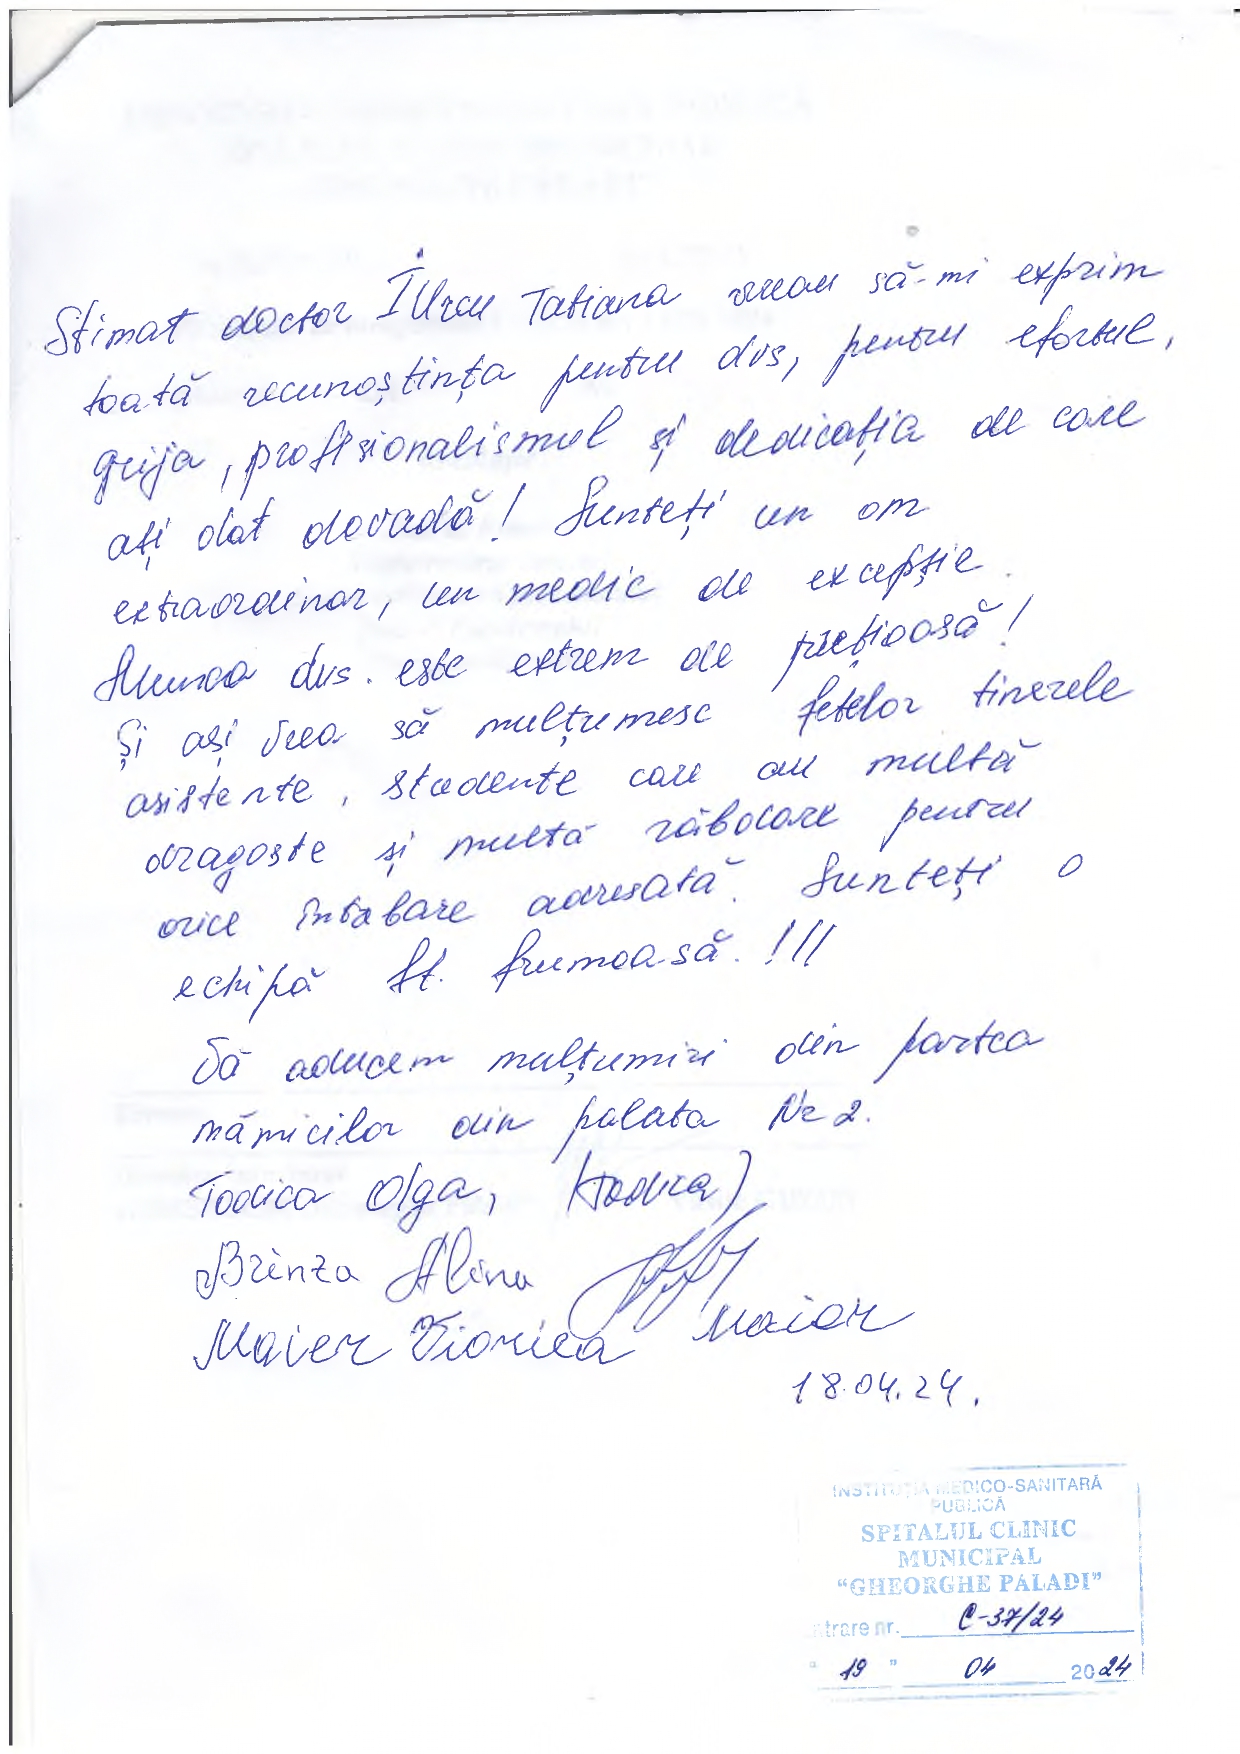 Stimat doctor Țurcu Tatiana vreau să-mi exprim
toată recunoștința pentru dvs, pentru efortul,
grija, profisionalismul și dedicația de care
ați dat dovadă! Sunteți un om
extraordinar, un medic de excepție.
Munca dvs. este extrem de prețioasă!
Și ași vrea să mulțumesc fetelor tinerele
asistente, studente care au multă
dragoste și multă răbdare pentru
orice întrebare adresată. Sunteți o
echipă ft. frumoasă.!!!
Vă aducem mulțumiri din partea
mămicilor din palata Nr 2.
Todica Olga,
Brînza Alina
Maier Viorica Maior
18.04.24.
INSTITUȚIA MEDICO-SANITARĂ
PUBLICĂ
SPITALUL CLINIC
MUNICIPAL
"GHEORGHE PALADI"
Intrare nr. C-37/24
" 19 " 04 2024